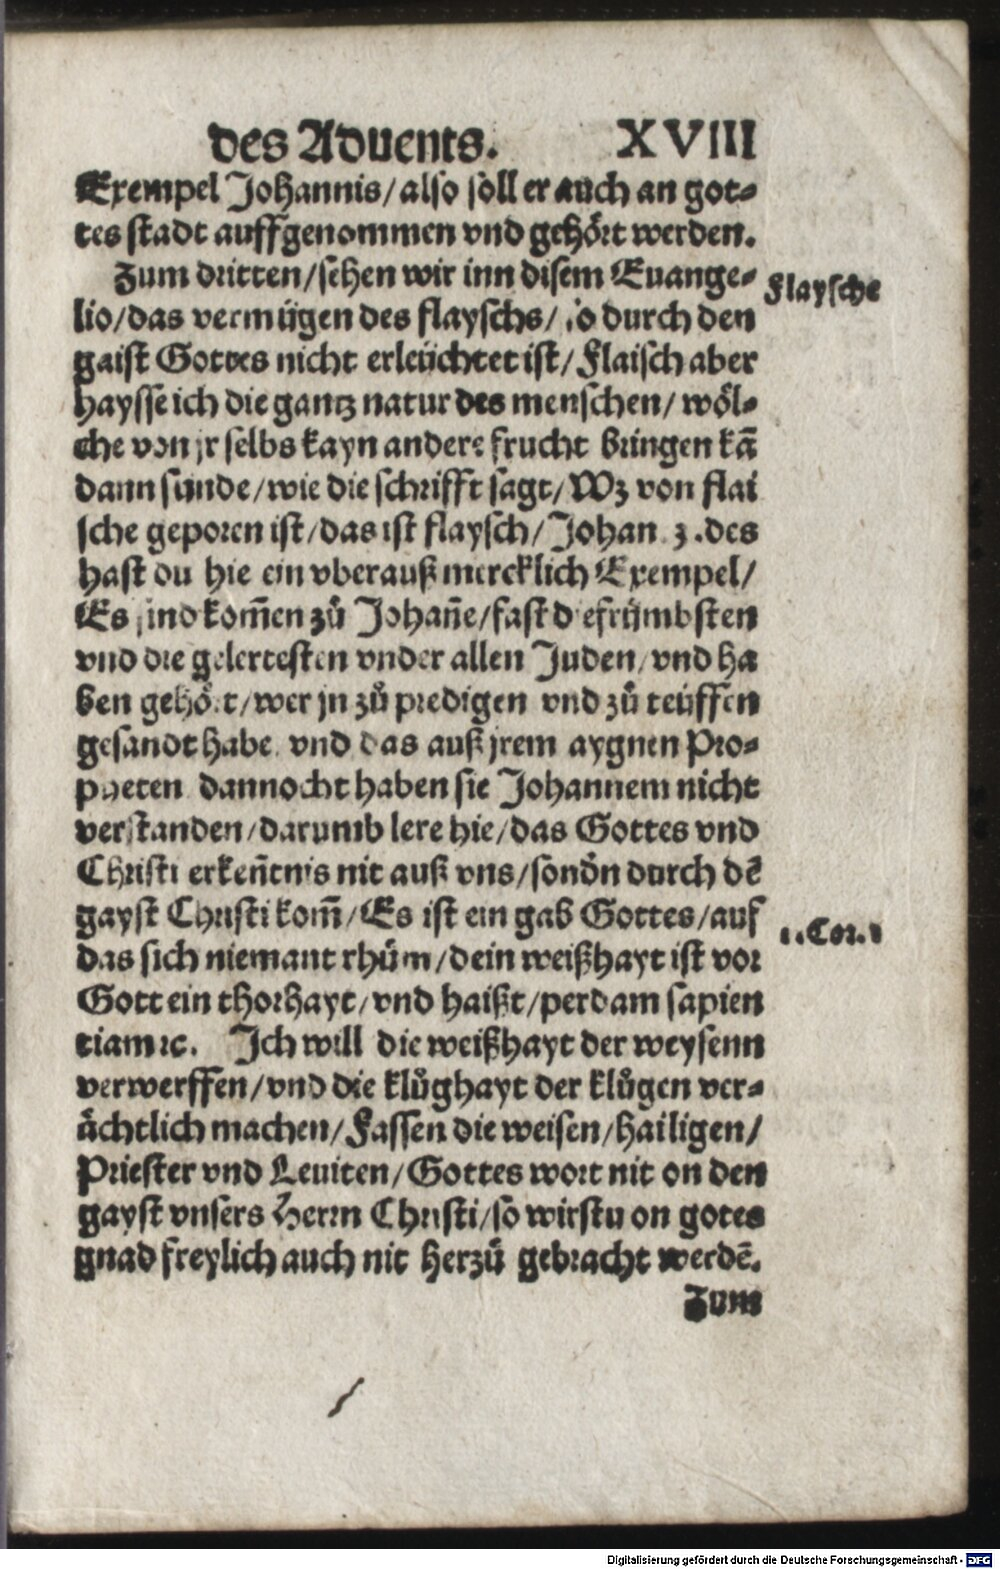 des Aduents. XVIII
Exempel Johannis/also soll er auch an got-
tes stadt auffgenommen vnd gehört werden.
Zum dritten/sehen wir inn disem Euange-
Flaysche
lio/das vermügen des flayschs/so durch den
gaist Gottes nicht erleüchtet ist/Flaisch aber
haysse ich die gantz natur des menschen/wöl-
che von jr selbs kayn andere frucht bringen kā
dann sünde/wie die schrifft sagt/Wz von flai
sche geporen ist/das ist flaysch/Johan. 3. des
hast du hie ein vberauß mercklich Exempel/
Es sind kom̄en zů Johan̄e/fast die frümbsten
vnd die gelertesten vnder allen Juden/vnd ha
ben gehört/wer jn zů predigen vnd zů teüffen
gesandt habe, vnd das auß jrem aygnen Pro-
pheten dannocht haben sie Johannem nicht
verstanden/darumb lere hie/das Gottes vnd
Christi erken̄tnis nit auß vns/sonđn durch dē
gayst Christi kom̄/Es ist ein gab Gottes/auf
1. Cor. 1
das sich niemant rhüm/dein weißhayt ist vor
Gott ein thorhayt/vnd haißt/perdam sapien
tiam ꝛc. Jch will die weißhayt der weysenn
verwerffen/vnd die klůghayt der klůgen ver-
ächtlich machen/Fassen die weisen/hailigen/
Priester vnd Leuiten/Gottes wort nit on den
gayst vnsers Herrn Christi/so wirstu on gotes
gnad freylich auch nit herzů gebracht werdē.
Zum
Digitalisierung gefördert durch die Deutsche Forschungsgemeinschaft - DFG